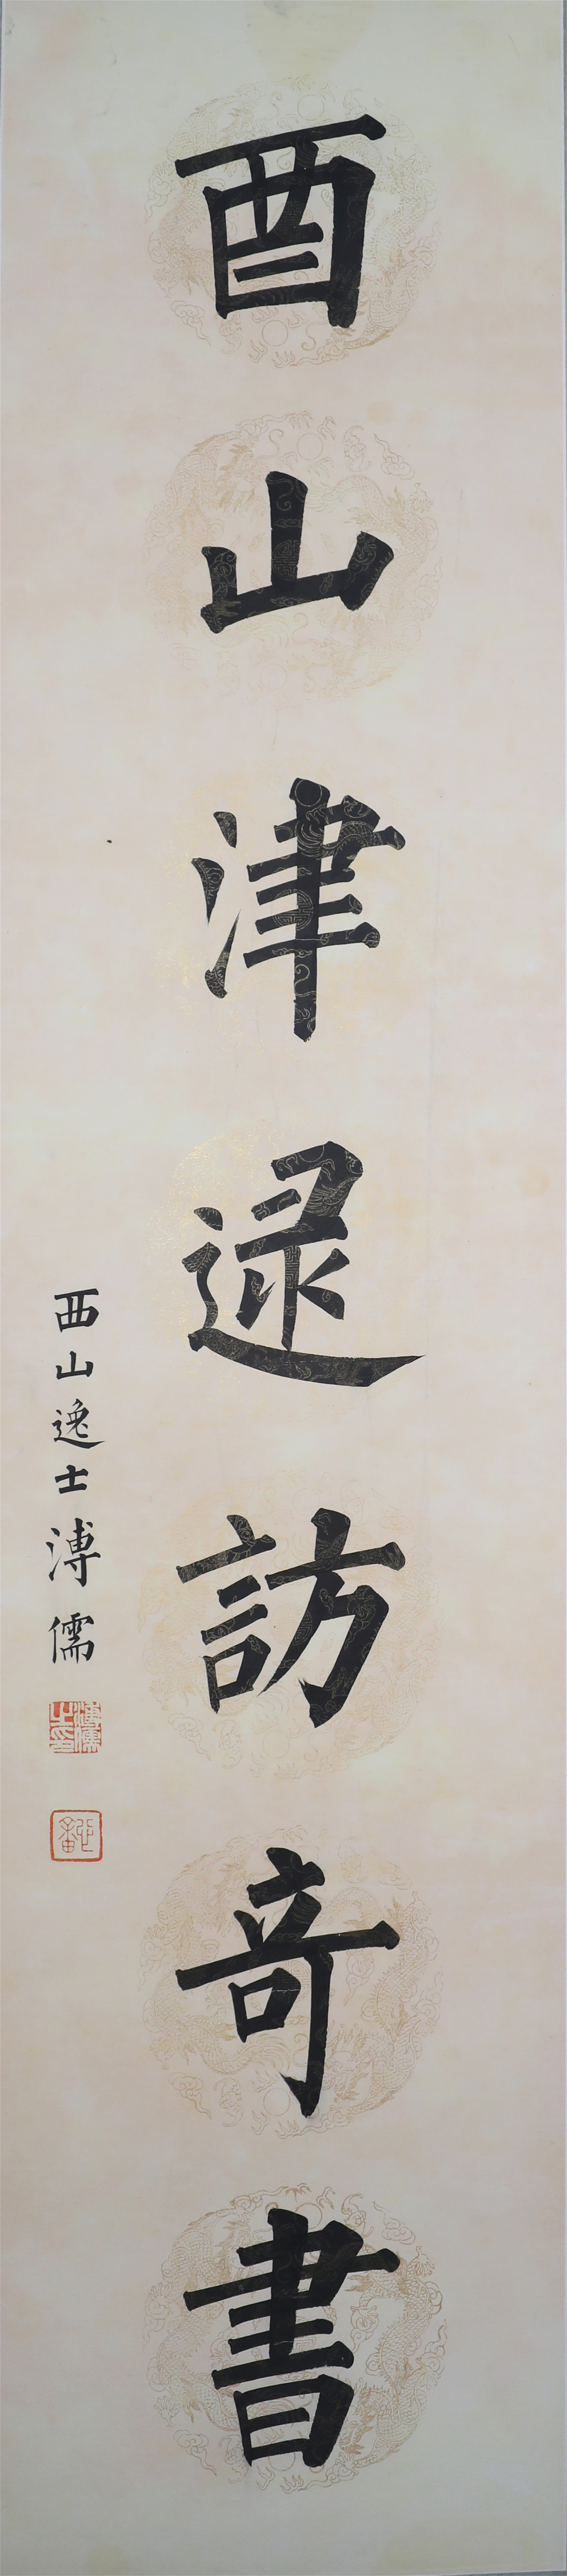 酉山津逮訪奇書
西山逸士溥儒
溥儒之印